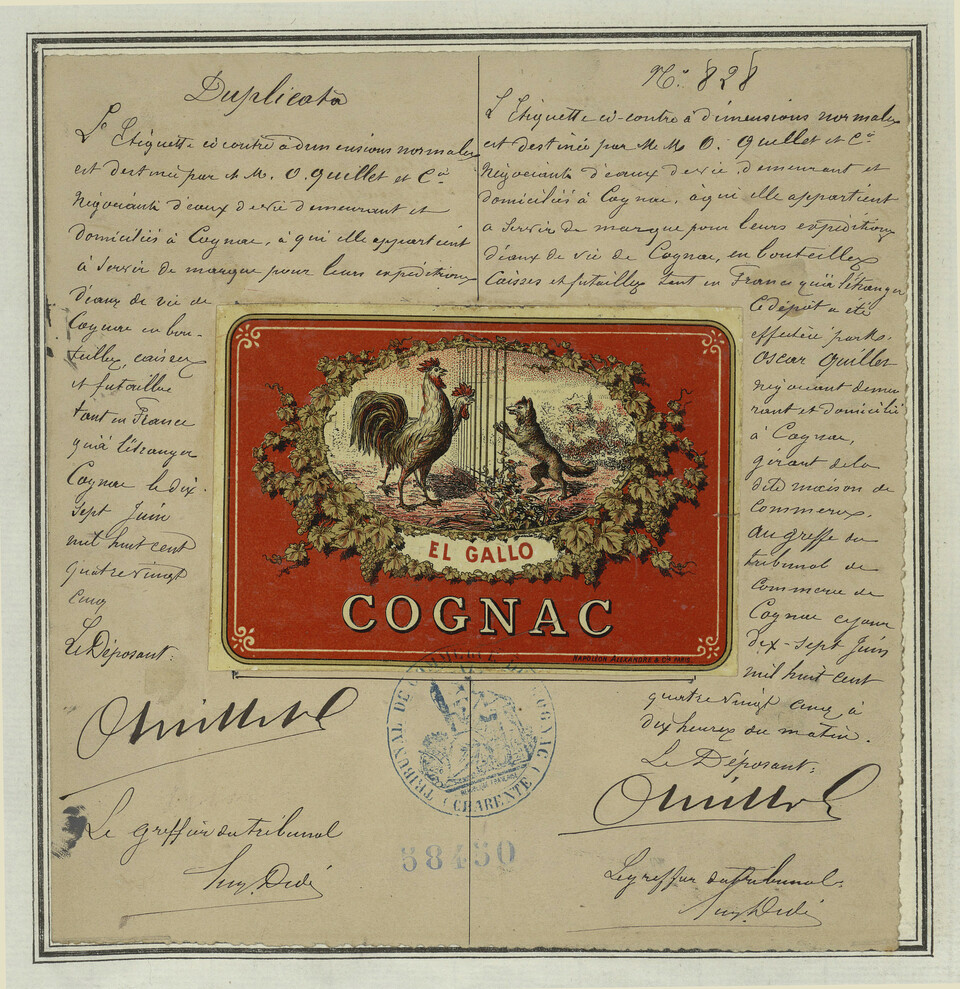 Duplicata
L'Etiquette ci contre à dimensions normales
est destinée par M M. O. Quillet et Cie
Négociants d'eaux de vie demeurant et
domiciliés à Cognac, à qui elle appartient
à servir de marque pour leurs expéditions
d'eaux de vie de
Cognac en bou-
teilles, caisses
et futailles
tant en France
qu'à l'étranger
Cognac le dix
sept Juin
mil huit cent
quatre vingt
cinq
Le Déposant:
Le greffier du tribunal
No. 828
L'Etiquette ci-contre à dimensions normales
est destinée par M M O. Quillet et Cie
Négociants d'eaux de vie, demeurant et
domiciliés à Cognac, à qui elle appartient
a servir de marque pour leurs expéditions
d'eaux de vie de Cognac, en bouteilles
caisses et futailles tant en France qu'à l'étranger
Ce dépôt a été
effectué par M.
Oscar Quillet
négociant demeu
rant et domicilié
à Cognac,
gérant de la
dite maison de
Commerce.
au greffe du
tribunal de
Commerce de
Cognac ce jour
dix-sept Juin
mil huit cent
quatre vingt cinq à
dix heures du matin.
Le Déposant:
Le greffier du tribunal.
EL GALLO
COGNAC
NAPOLÉON ALEXANDRE & Cie PARIS
TRIBUNAL DE COMMERCE DE COGNAC (CHARENTE)
RÉPUBLIQUE FRANÇAISE
58450